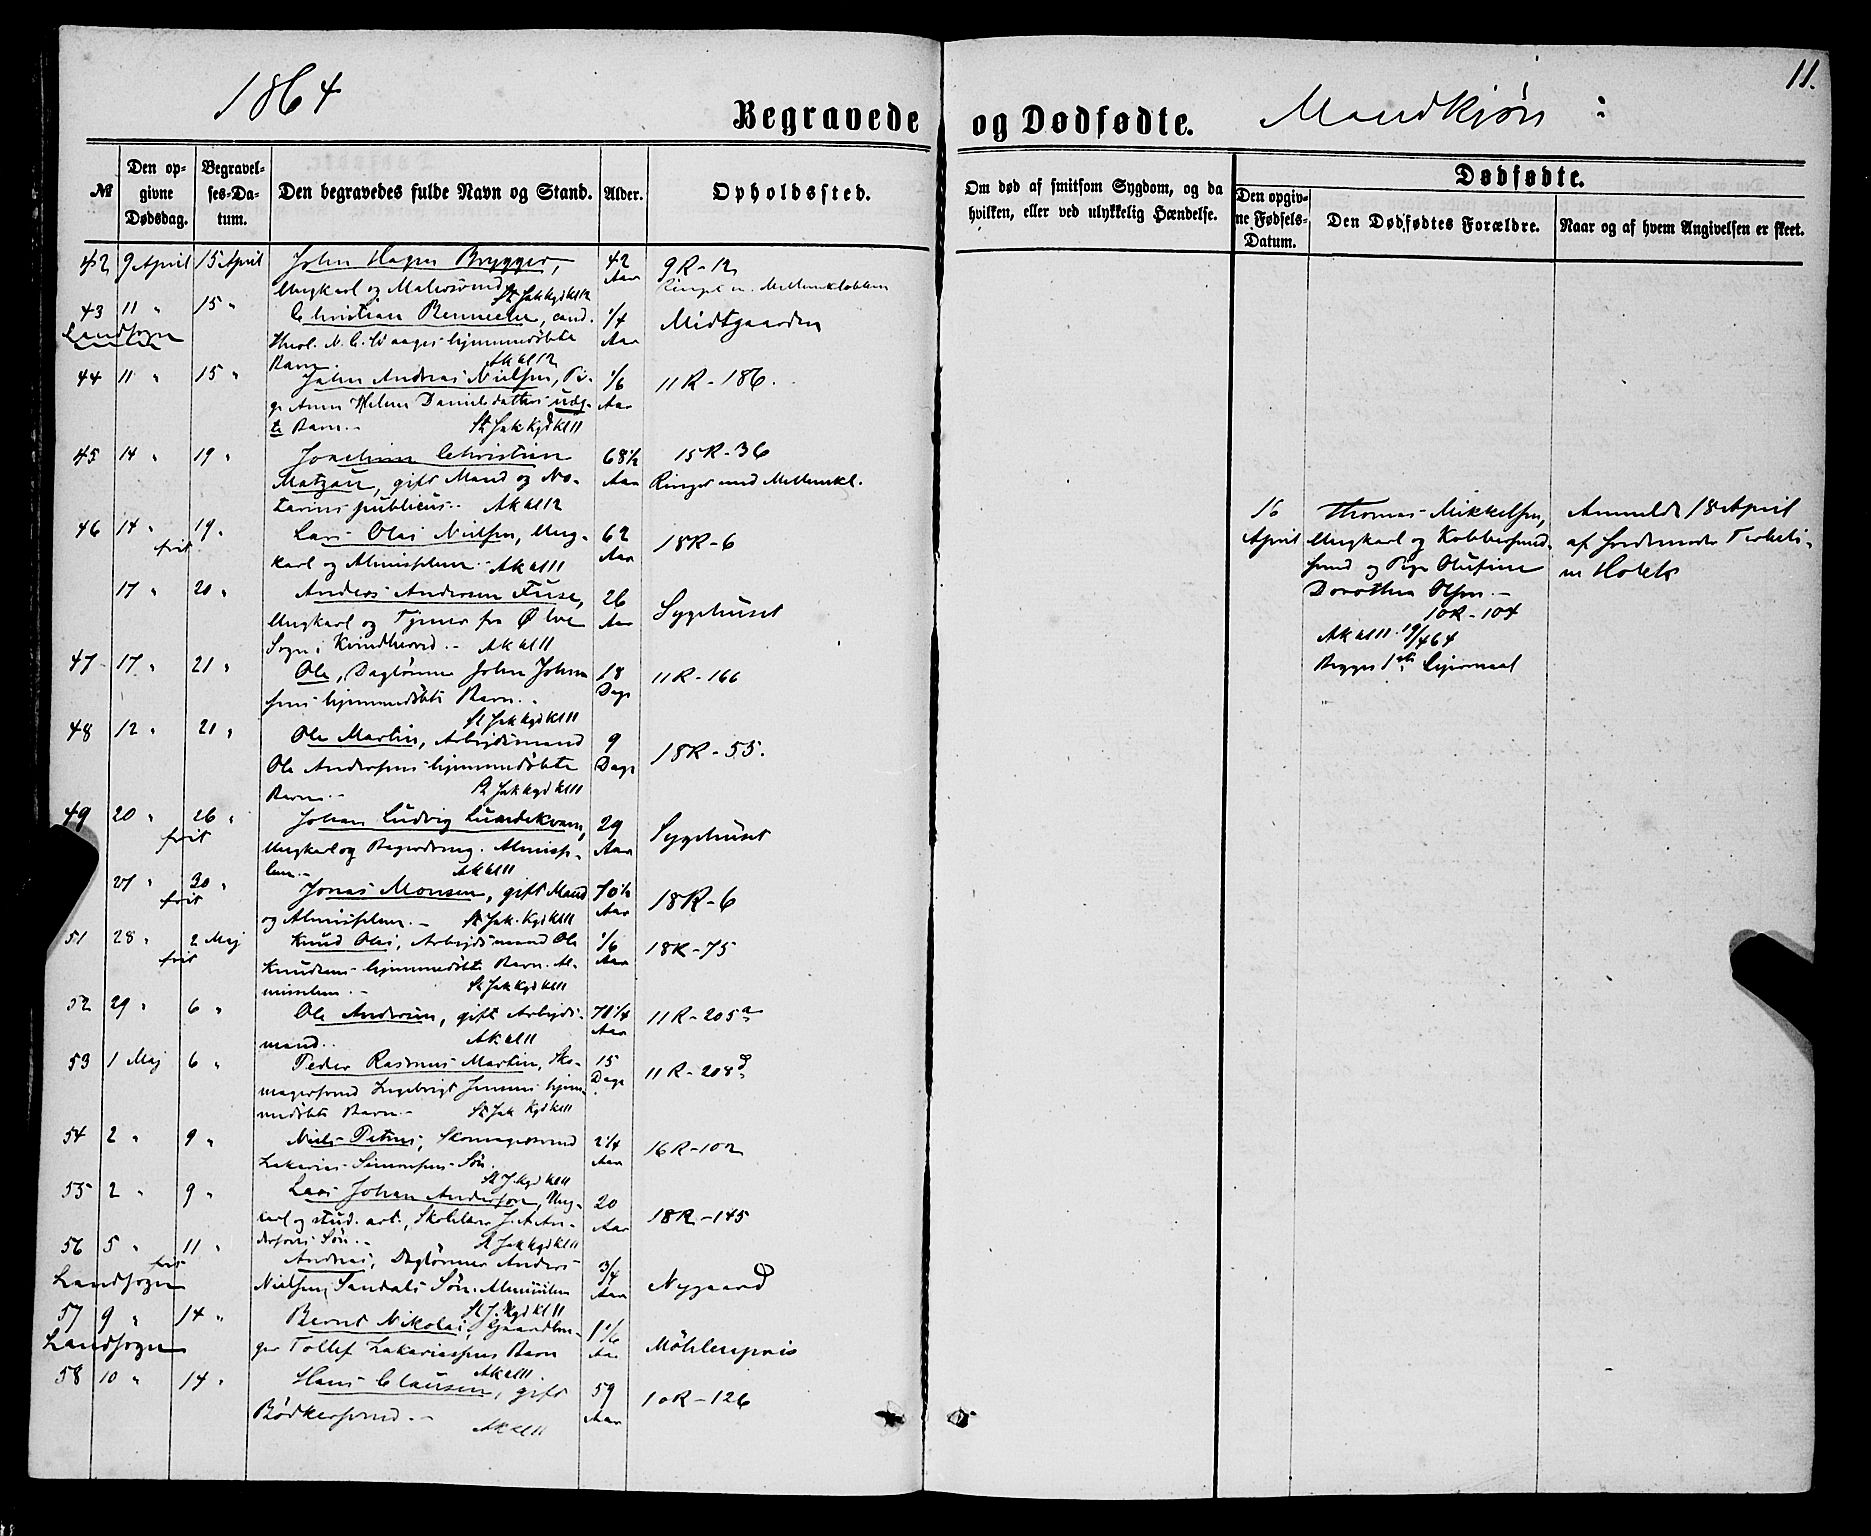 1864
Begravede og Dødfødte.
Mandkjøn :
11.
№
Den opgivne Dødsdag.
Begravelses-Datum.
Den begravedes fulde Navn og Stand.
Alder.
Opholdssted.
Om død af smitsom Sygdom, og da hvilken, eller ved ulykkelig Hændelse.
Dødfødte.
Den opgivne Fødsels-Datum.
Den Dødfødtes Forældre.
Naar og af hvem Angivelsen er skeet.
42 9 April 15 April John Hagen Brygger, 42 Aar 9R-12
Ungkarl og Malersvend St Jak Kgd kl 12
43 11 " 15 " Christian, cand. 1/4 Aar Midtgaarden
Landsogn theol. hjemmedøbte
Barn. Ak kl 12
44 11 " 15 " John Andreas Nielsen, Pi- 1/6 Aar 11R-186.
ge Anne Helene Danielsdatters uægte
Barn.- St Jak Kgd kl 11
45 14 " 19 " Joachim Christian 68½ Aar 15R-36
Matzau, gift Mand og No- Ringer med Mellemkl.
tarius publicus.- Ak kl 12
46 14 " 19 " Lars Olai Nielsen, Ung- 62 Aar 18R-6
frit karl og Almisselem - Ak kl 11
17 " 20 " Anders Andersen Fuse, 26 Aar Sygehuset
Ungkarl og Tjener fra Ølve
Sogn i Kvindherred.- Ak kl 11
47 17 " 21 " Ole, Daglønner John John- 18 Dage 11R-166
sens hjemmedøbte Barn.-
St Jak kgd kl 11
48 12 " 21 " Ole Martin, Arbejdsmand 9 Dage 18R-55.
Ole Andersens hjemmedøbte
Barn.- St Jak kgd kl 11
49 20 " 26 " Johan Ludvig Lundekvam, 29 Aar Sygehuset
frit Ungkarl og Almisse-
lem.- Ak kl 11
21 " 30 " Jonas Monsen, gift Mand 70½ Aar 18R-6
frit og Almisselem.- St Jak. Kgd kl 11
51 28 " 2 Maj Knud Olai, Arbejdsmand Ole 1/6 Aar 18R-75
frit Knudsens hjemmedøbte Barn. Al-
misselem.- St Jak Kgd kl 11
52 29 " 6 " Ole Andersen, gift Arbejds- 70¼ Aar 11R-205a
mand.- Ak kl 11
53 1 Maj 6 " Peder Rasmus Martin, Sko- 15 Dage 11R-208d
magersvend Ingebrigt Jensens hjem-
medøbte Barn.- St Jak Kgd kl 11
54 2 " 9 " Niels Petrus, Skomagersvend 2¼ Aar 16R-102
Zakarias Simonsens Søn.
St J. kgd kl 11
55 2 " 9 " Lars Johan Anderssen, Ung- 20 Aar 18R-145
karl og stud. art., Skolelærer J. A. An-
dersens Søn.- St Jak kgd kl 11
56 5 " 11 " Andreas, Daglønner Anders 3/4 Aar Nygaard
frit
Landsogn Nielsen Sandals Søn. Almisselem
St J. Kgd kl 11
57 9 " 14 " Bernt Nikolai, Gaardbru- 1 1/6 Aar Møhlenpris
Landsogn ger Tollef Zakariassens Barn
Ak kl 11.
58 10 " 14 " Hans Clausen, gift 59 Aar 10R-126
Bødkersvend.-
Ak kl 11
16 April
Thomas Mikkelsen,
Ungkarl og Kobbersmed-
svend og Pige Olufine
Dorothea Olsen.-
10R-104
Ak kl 11. 19/4 64
Begges 1ste Lejermaal
Anmeldt 18 April
af Jordemoder
Holck